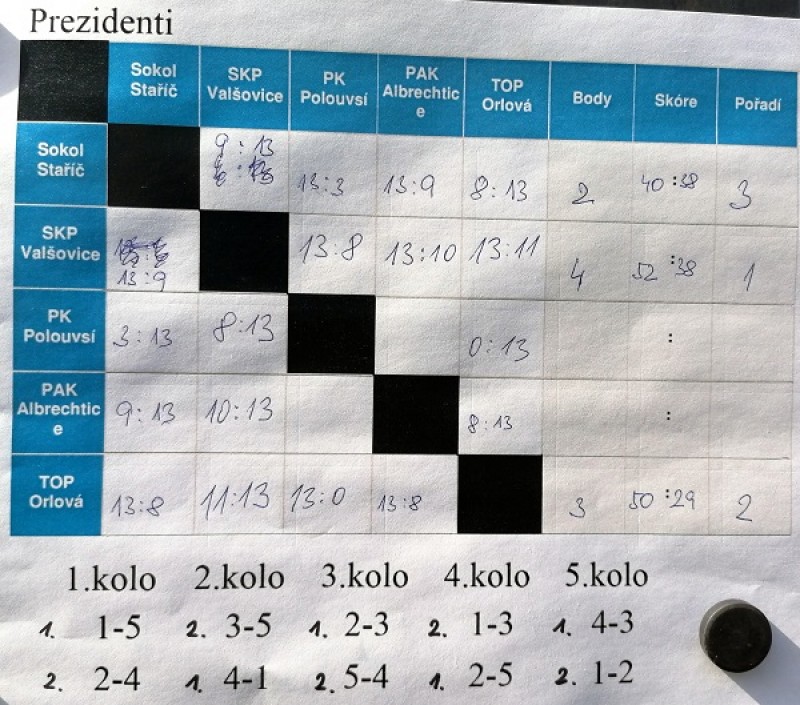 Prezidenti
Sokol Staříč SKP Valšovice PK Polouvsí PAK Albrechtic e TOP Orlová Body Skóre Pořadí
Sokol Staříč 9:13 13:3 13:9 8:13 2 40:38 3
SKP Valšovice 13:9 13:8 13:10 13:11 4 52:38 1
PK Polouvsí 3:13 8:13 0:13 :
PAK Albrechtic e 9:13 10:13 8:13 :
TOP Orlová 13:8 11:13 13:0 13:8 3 50:29 2
1.kolo 2.kolo 3.kolo 4.kolo 5.kolo
1. 1-5 2. 3-5 1. 2-3 2. 1-3 1. 4-3
2. 2-4 1. 4-1 2. 5-4 1. 2-5 2. 1-2